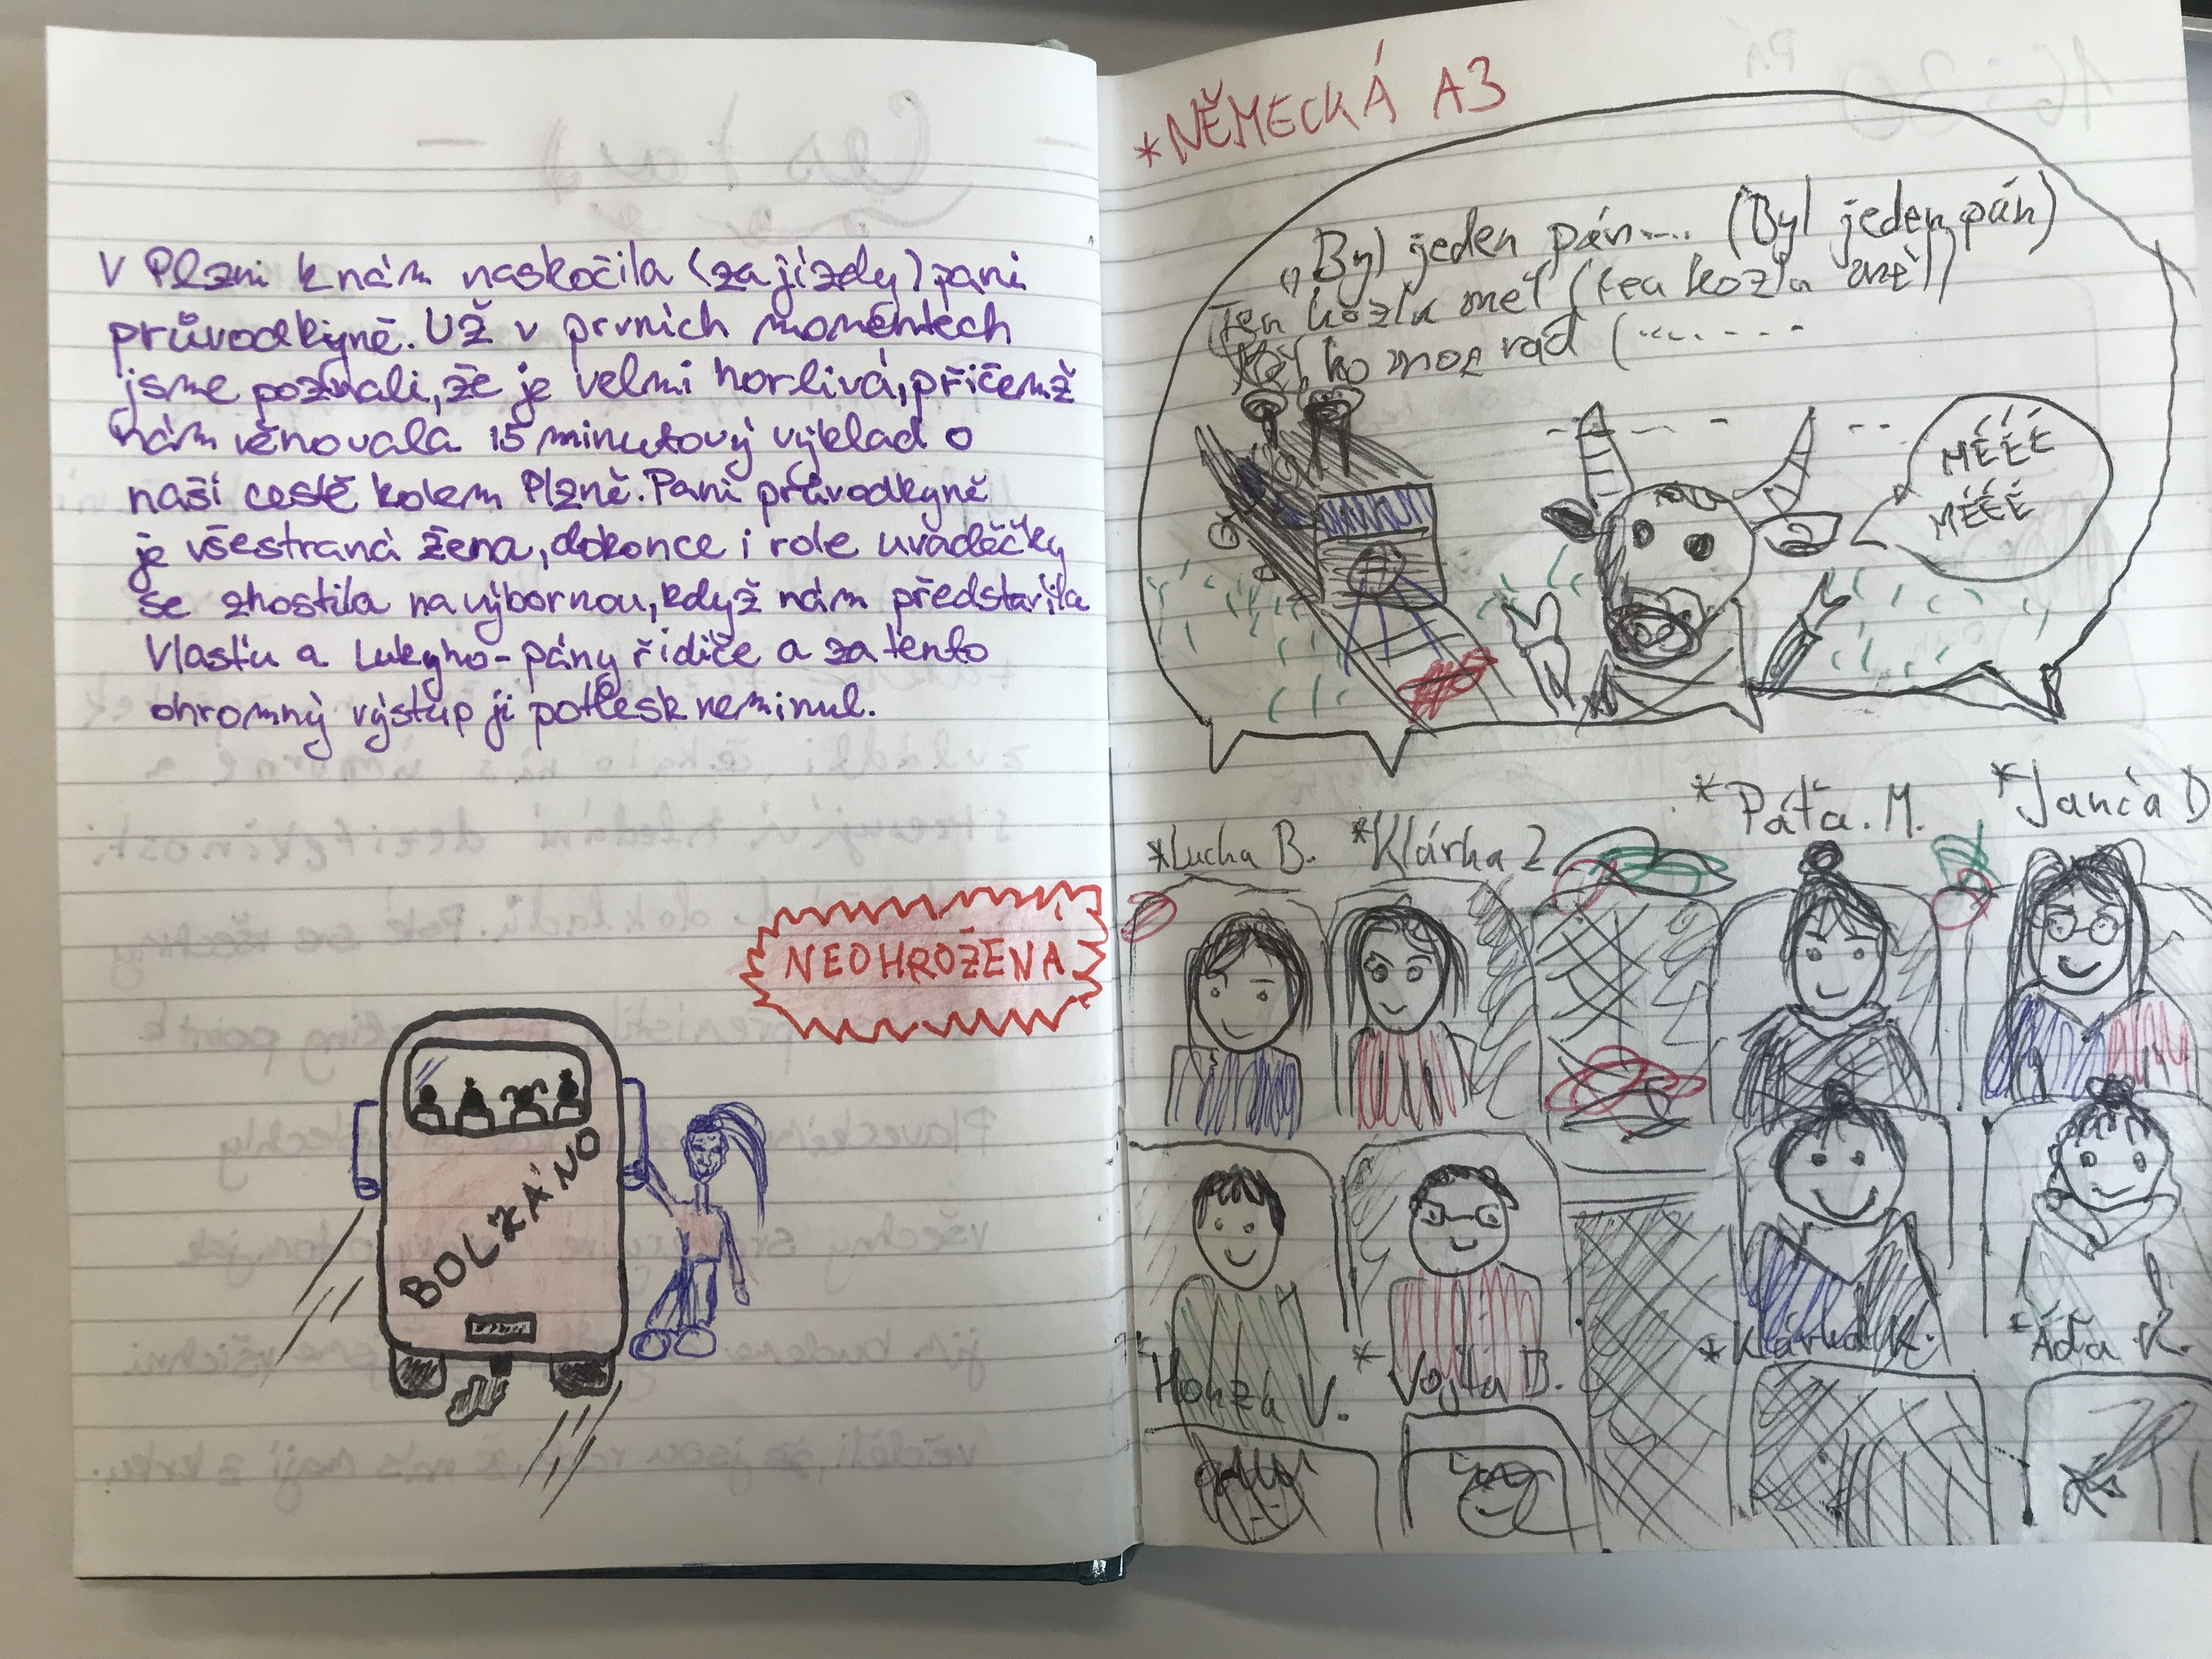 V Plzni k nám naskočila (za jízdy) paní
průvodkyně. Už v prvních momentech
jsme poznali, že je velmi horlivá, přičemž
nám věnovala 15 minutový výklad o
naší cestě kolem Plzně. Paní průvodkyně
je všestraná žena, dokonce i role uváděčky
se zhostila na výbornou, když nám představila
Vlastu a Lukyho - pány řidiče a za tento
ohromný výstup ji potlesk neminul.
NEOHROŽENA
BOLZÁNO
*NĚMECKÁ A3
„Byl jeden pán.... (Byl jeden pán)
Ten kozla měl (ten kozla měl)
rád (.......
MÉÉÉ
MÉÉÉ
*Lucka B. *Klárka Z. *Páťa. M. *Janča D
*Honza V. *Vojta B. *Klárka K. *Áďa K.